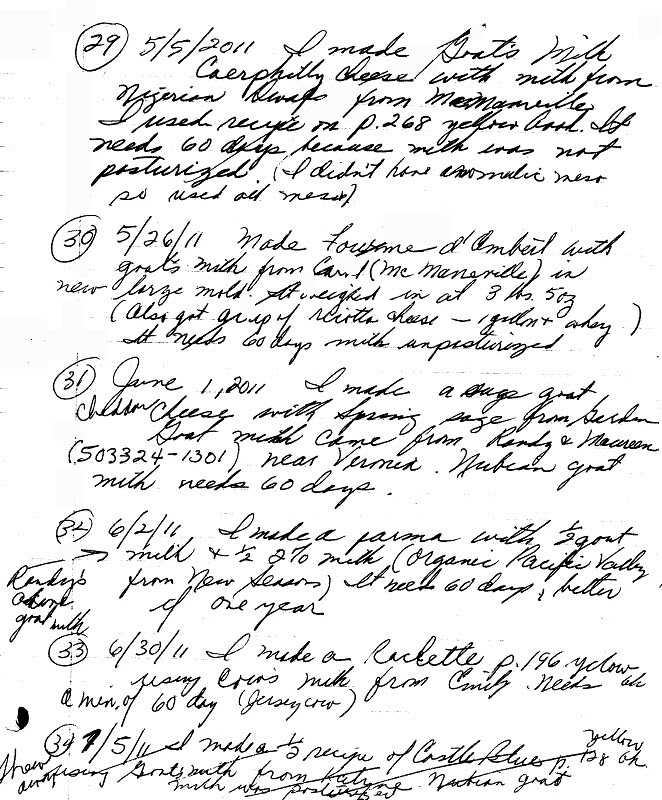 (29) 5/5/2011 I made Goat's Milk
Caerphilly cheese with milk from
Nigerian Dwarfs from McManville
I used recipe on p.268 yellow book. It
needs 60 days because milk was not
posturized. (I didn't have aromatic meso
so used old meso)
(30) 5/26/11 Made Fourme d'Ambert with
goat's milk from Carol (McManville) in
new large mold. It weighed in at 3 lbs. 5oz
(Also got of ricotta cheese — 1 gallon + whey)
It needs 60 days milk unposturized
(31) June 1, 2011 I made a sage goat
cheddar cheese with spring sage from Garden
Goat milk came from Randy & Maureen
(503324-1301) near Vernonia. Nubian goat
milk needs 60 days.
(32) 6/2/11 I made a parma with 1/2 goat
→ milk & 1/2 2% milk (Organic Pacific Valley
Randy's from New Seasons) It needs 60 days, better
if one year
goat milk
(33) 6/30/11 I made a Raclette p.196 yellow
using cows milk from Emily. Needs
a min. of 60 day (Jersey cow)
(34) 7/5/11 I made a 1/2 recipe of Castle Blue p. 128 yellow
threw away using Goats milk from Katy. Nubian goat
milk was posturized.